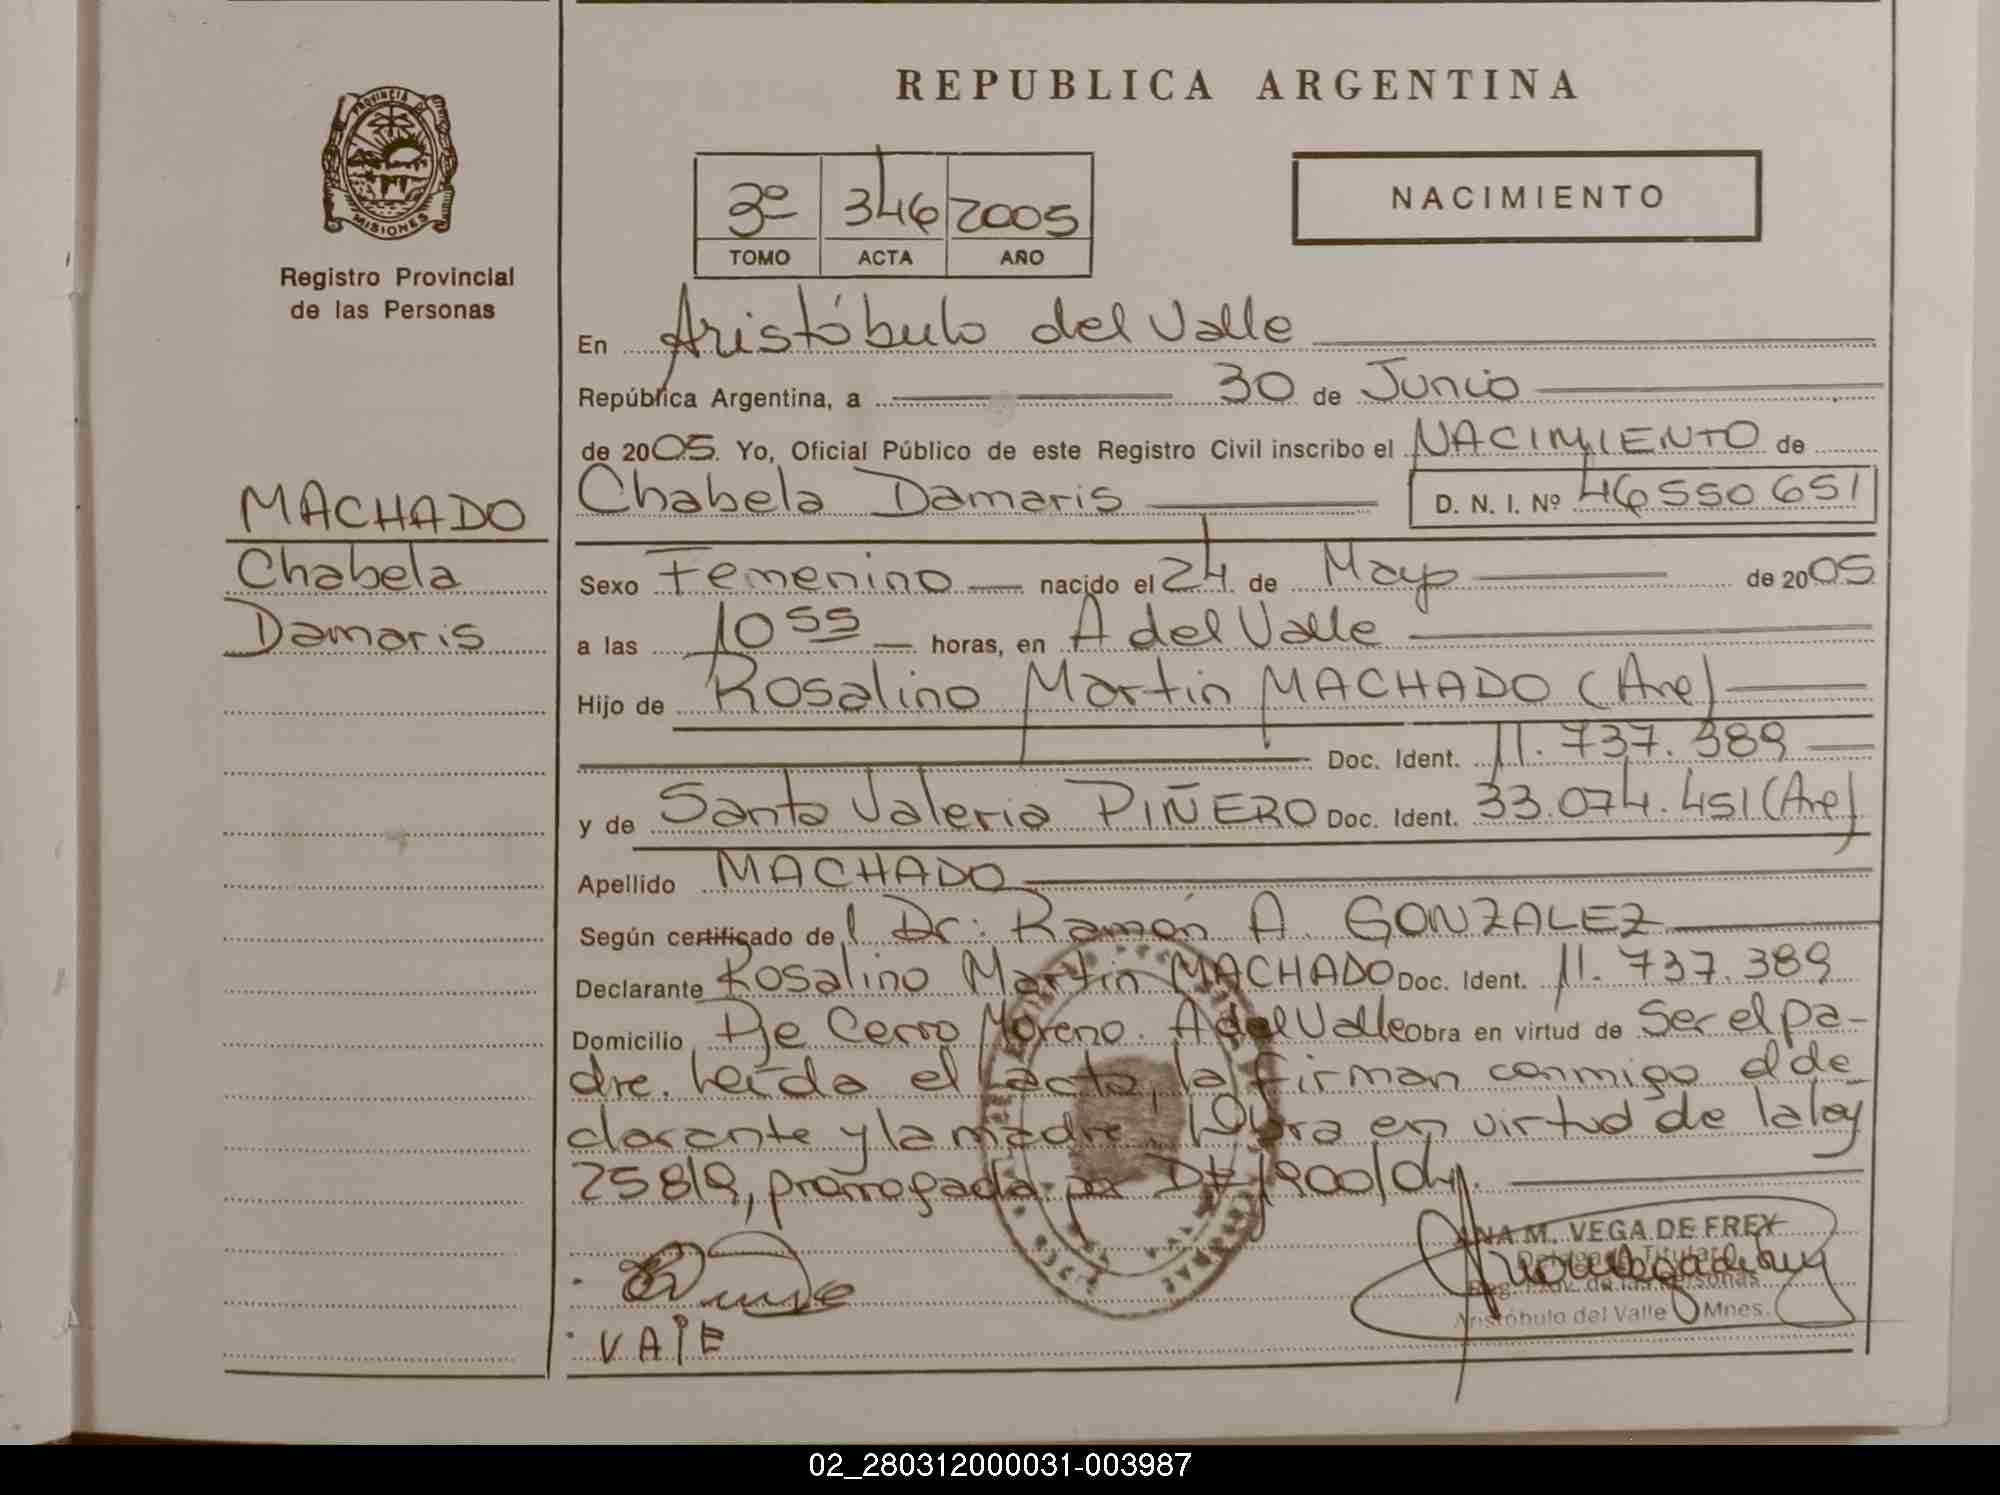 PROVINCIA DE
MISIONES
Registro Provincial
de las Personas
MACHADO
Chabela
Damaris
REPUBLICA ARGENTINA
3º 346 2005
TOMO ACTA AÑO
NACIMIENTO
En Aristóbulo del Valle
República Argentina, a 30 de Junio
de 2005. Yo, Oficial Público de este Registro Civil inscribo el NACIMIENTO de
Chabela Damaris D. N. I. Nº 46550651
Sexo Femenino nacido el 24 de Mayo de 2005
a las 10 55 horas, en A del Valle
Hijo de Rosalino Martin MACHADO (Are)
Doc. Ident. 11.737.389
y de Santa Valeria PIÑERO Doc. Ident. 33.074.451 (Are)
Apellido MACHADO
Según certificado del Dr: Ramón A. GONZALEZ
Declarante Rosalino Martin MACHADO Doc. Ident. 11.737.389
Domicilio Pje Cerro Moreno. A del Valle Obra en virtud de Ser el pa-
dre. Leída el acta, la firman conmigo el de
clarante y la madre. Obra en virtud de la ley
25819, prorrogada por 1900/04.
ANA M. VEGA DE FREY
Delegada Titular
Reg. Prov. de las Personas
Aristóbulo del Valle Mnes.
VAlE
02_280312000031-003987